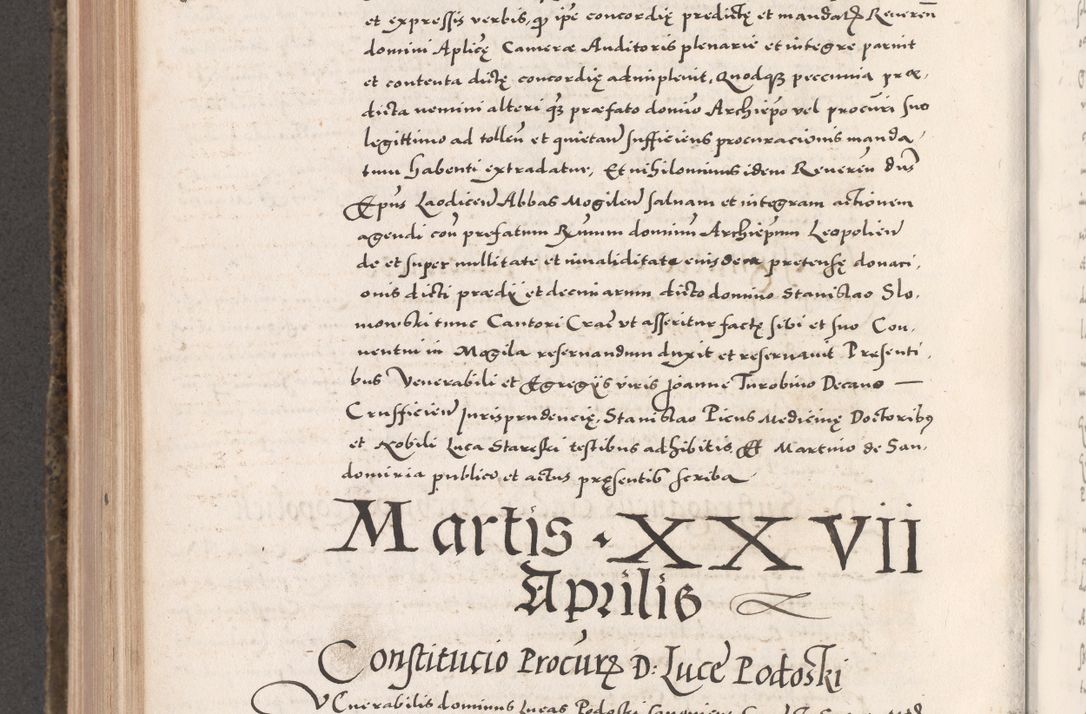 et expressis verbis, ꝙ ipe concordię predictę et mandatꝝ Reveren̄
domini Aplicę Cameræ Auditoris plenarie et integre paruit
et contenta dictę concordię adimplevit, Quodqꝫ peccunia præ-
dicta nemini alteri qꝫ præfato domino Archiepo vel procuri suo
legittimo ad tollen̄ et quietan̄ sufficiens procuracionis manda-
tum habenti extradatur, Et nihilominus idem Reveren̄ dn̄s
Epus Laodicen̄ Abbas Mogilen̄ salvam et integram actionem
agendi con prefatum Rmum dominum Archiepum Leopolien̄
de et super nullitate et invaliditate eiusdem pretensę donaci-
onis dicti prædij et decimarum dicto domino Stanislao Slo-
mowski tunc Cantori Crac̄ ut asseritur factę sibi et suo Con-
uentui in Mogila reservandum duxit et reservavit Presenti-
bus Venerabili et Egregijs viris Joanne Turobino Decano —
Crusficien̄ Jurisprudencię, Stanislao Picus Medicinę Doctoribꝰ
et Nobili Luca Stareski testibus adhibitis Et Martino de San-
domiria publico et actus pręsentis scriba
Martis · XXVII
Aprilis
Constitucio Procurę D: Lucę Podoski
Venerabilis dominus Lucas Podoski